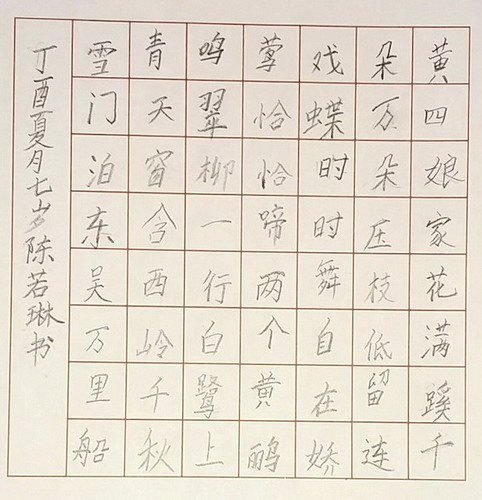 黄四娘家花满蹊千
朵万朵压枝低留连
戏蝶时时舞自在娇
莺恰恰啼两个黄鹂
鸣翠柳一行白鹭上
青天窗含西岭千秋
雪门泊东吴万里船
丁酉夏月七岁陈若琳书